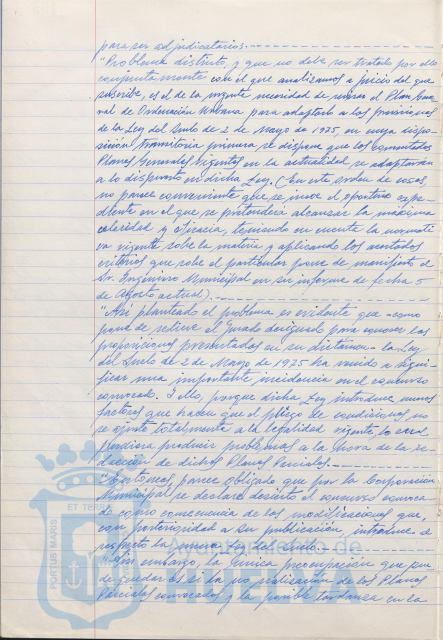 para ser adjudicatarios.
"Problema distinto, y que no debe ser tratado por ello
conjuntamente con el que analizamos a juicio del que
suscribe, es el de la urgente necesidad de revisar el Plan Gene-
ral de Ordenación Urbana para adaptarlo a las previsiones
de la Ley del Suelo de 2 de Mayo de 1975, en cuya dispo-
sición transitoria primera se dispone que los comentados
Planes Generales vigentes en la actualidad se adaptarán
a lo dispuesto en dicha Ley. (En este orden de cosas,
no parece conveniente que se inicie el oportuno expe-
diente en el que se pretenderá alcanzar la máxima
celeridad y eficacia, teniendo en cuenta la normati
va vigente sobre la materia y aplicando los acertados
criterios que sobre el particular pone de manifiesto el
Sr. Ingeniero Municipal en su informe de fecha 5
de Agosto actual).
"Así planteado el problema es evidente que -como
pone de relieve el Jurado designado para conocer las
proposiciones presentadas en su dictamen- la Ley
del Suelo de 2 de Mayo de 1975 ha venido a signi-
ficar una importante incidencia en el concurso
convocado. Ello, porque dicha Ley introduce unos
factores que hacen que el pliego de condiciones no
se ajuste totalmente a la legalidad vigente, lo cual
pudiera producir problemas a la hora de la re-
dacción de dichos Planes Parciales.
"Entonces, parece obligado que por la Corporación
Municipal se declare desierto el concurso convoca-
do como consecuencia de las modificaciones que,
con posterioridad a su publicación, introduce a
respecto la nueva Ley del Suelo.
"Sin embargo, la única preocupación que pue-
de quedar es si la no realización de los Planes
Parciales convocados y la posible tardanza en la
PORTUS MARIS
ET TERR
Ayuntamiento de